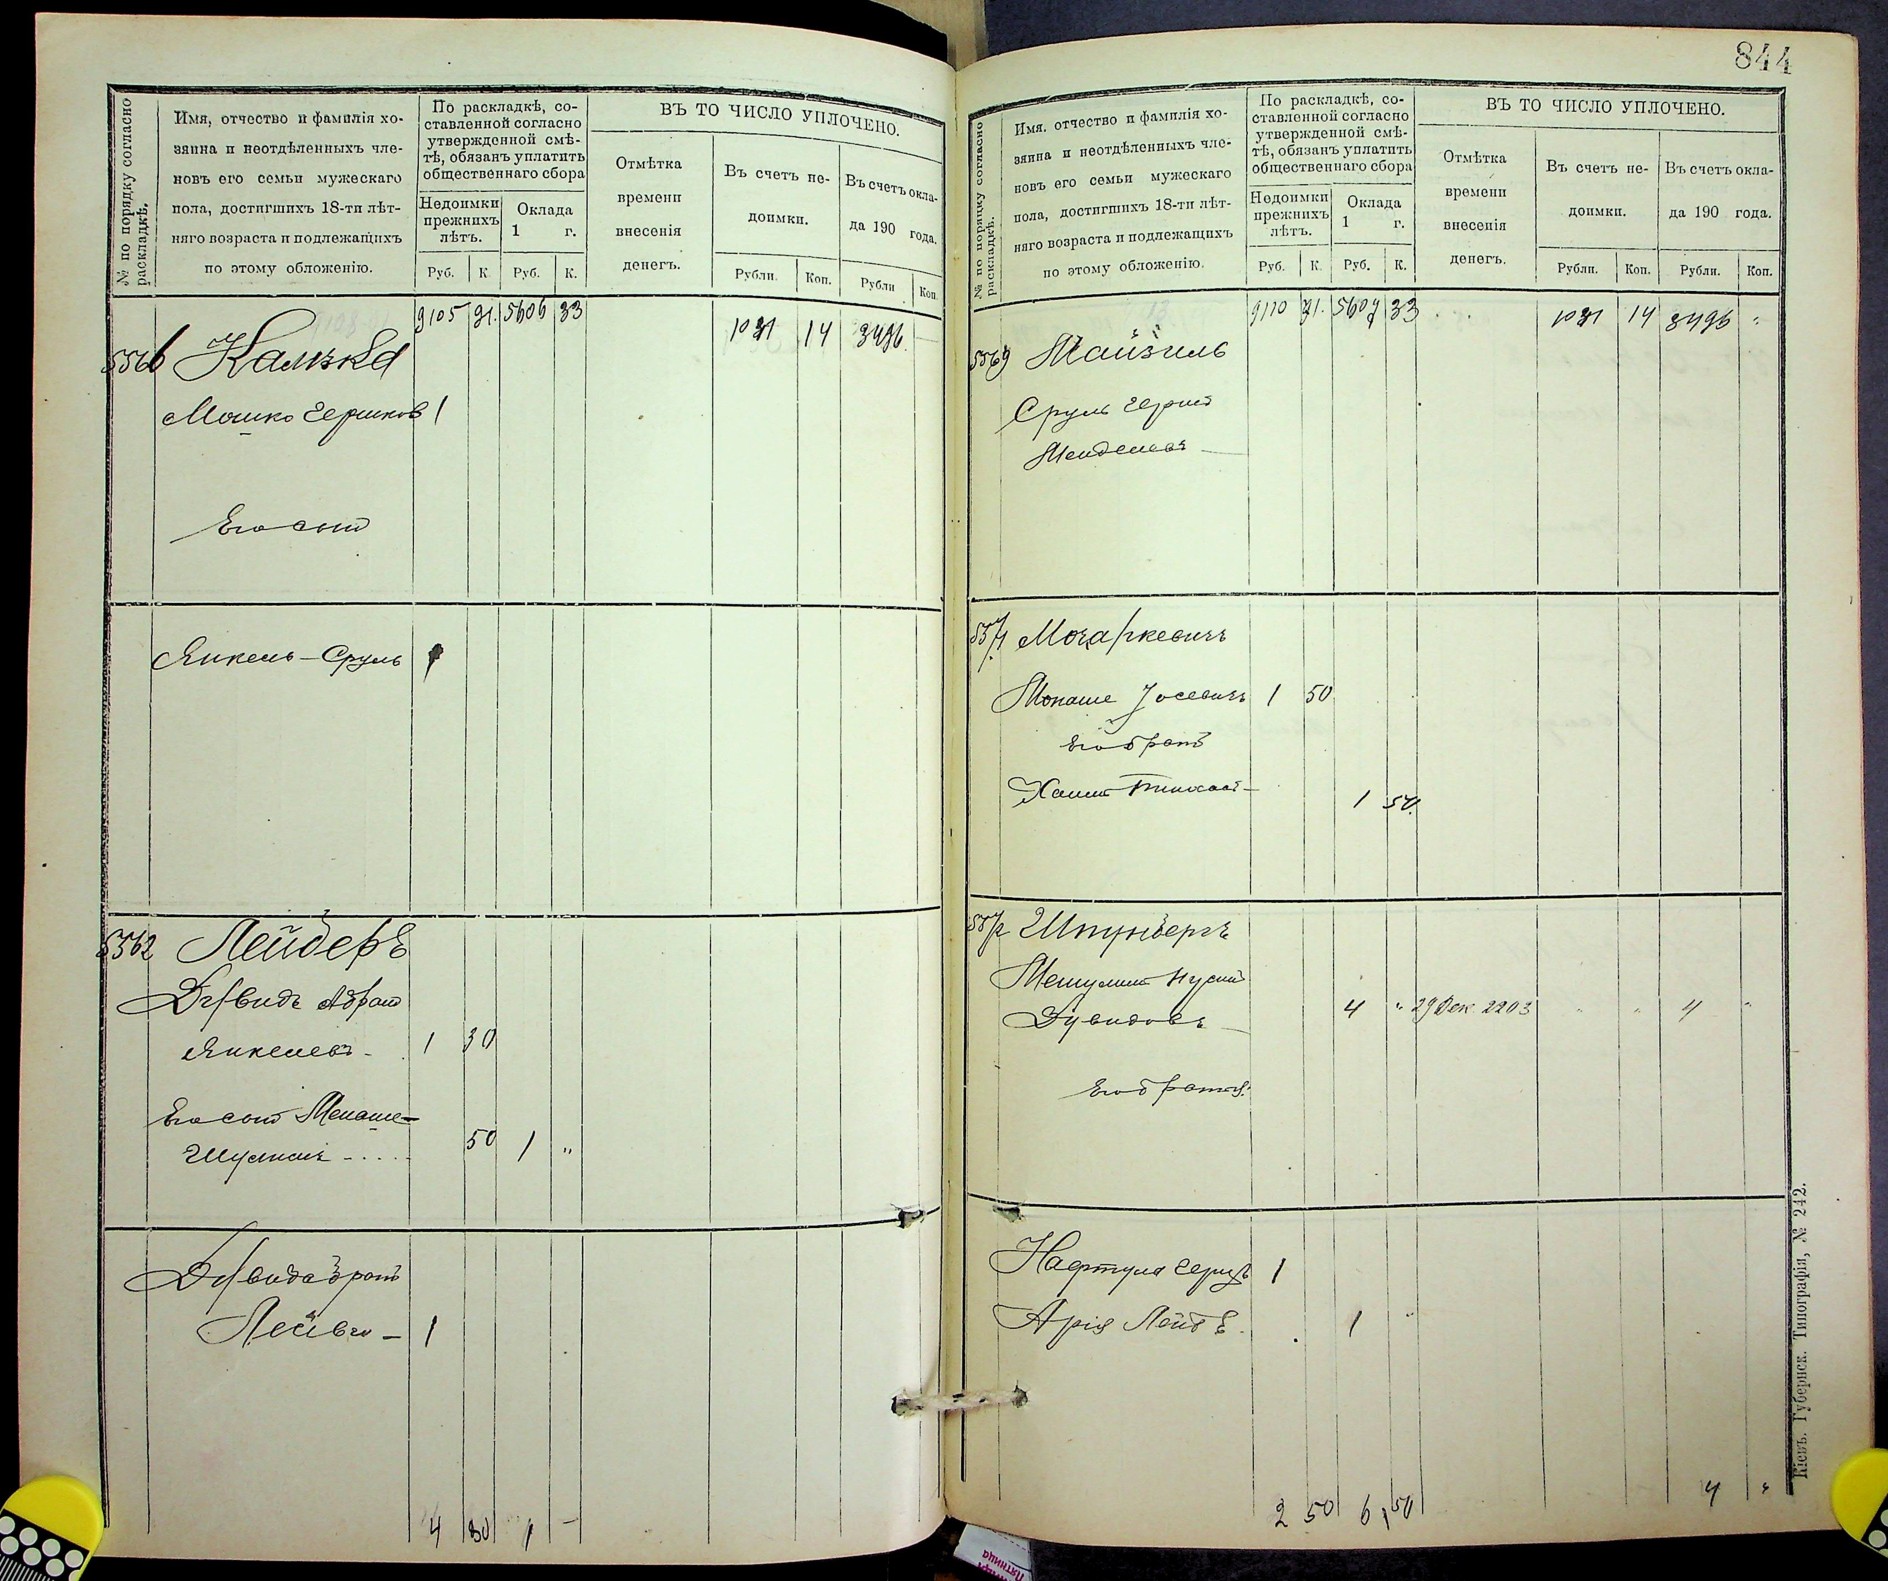 844
№ по порядку согласно раскладкѣ.
Имя, отчество и фамилія хо-
зяина и неотдѣленныхъ чле-
новъ его семьи мужескаго
пола, достигшихъ 18-ти лѣт-
няго возраста и подлежащихъ
по этому обложенію.
По раскладкѣ, со-
ставленной согласно
утвержденной смѣ-
тѣ, обязанъ уплатить
общественнаго сбора
Недоимки
прежнихъ
лѣтъ.
Оклада
1 г.
Руб. К. Руб. К.
ВЪ ТО ЧИСЛО УПЛОЧЕНО.
Отмѣтка
времени
внесенія
денегъ.
Въ счетъ не-
доимки.
Въ счетъ окла-
да 190 года.
Рубли. Коп. Рубли Коп.
9105 71. 5606 33 1071 14 3496. —
5566 Калѣка
Мошко Гершков 1
Его сын
Янкель-Сруль
5562 Лейдеръ
Дувидъ Абрам
Янкелевъ - 1 30
Его сын Менаше-
Шулимъ - .... 50 1 "
Дувида брат
Лейви - 1
4 80 1 —
№ по порядку согласно раскладкѣ.
Имя, отчество и фамилія хо-
зяина и неотдѣленныхъ чле-
новъ его семьи мужескаго
пола, достигшихъ 18-ти лѣт-
няго возраста и подлежащихъ
по этому обложенію.
По раскладкѣ, со-
ставленной согласно
утвержденной смѣ-
тѣ, обязанъ уплатить
общественнаго сбора
Недоимки
прежнихъ
лѣтъ.
Оклада
1 г.
Руб. К. Руб. К.
ВЪ ТО ЧИСЛО УПЛОЧЕНО.
Отмѣтка
времени
внесенія
денегъ.
Въ счетъ не-
доимки.
Въ счетъ окла-
да 190 года.
Рубли. Коп. Рубли. Коп.
9110 71. 5607 33 1071 14 3496 "
5569 Майзиль
Сруль Герш
Менделевъ
5571 Мочаркевичъ
Монаше Іосевичъ 1 50
Его братъ
Хаим Пинхас - 1 50.
5572 Шпунбергъ
Мешулим Нусин
Дувидовъ 4 " 29 Дек 2203 " " 4 "
Его братья:
Нафтула Гершъ 1
Арія Лейбъ. 1
2 50 6 50 4 "
Кіевъ. Губернск. Типографія, № 242.